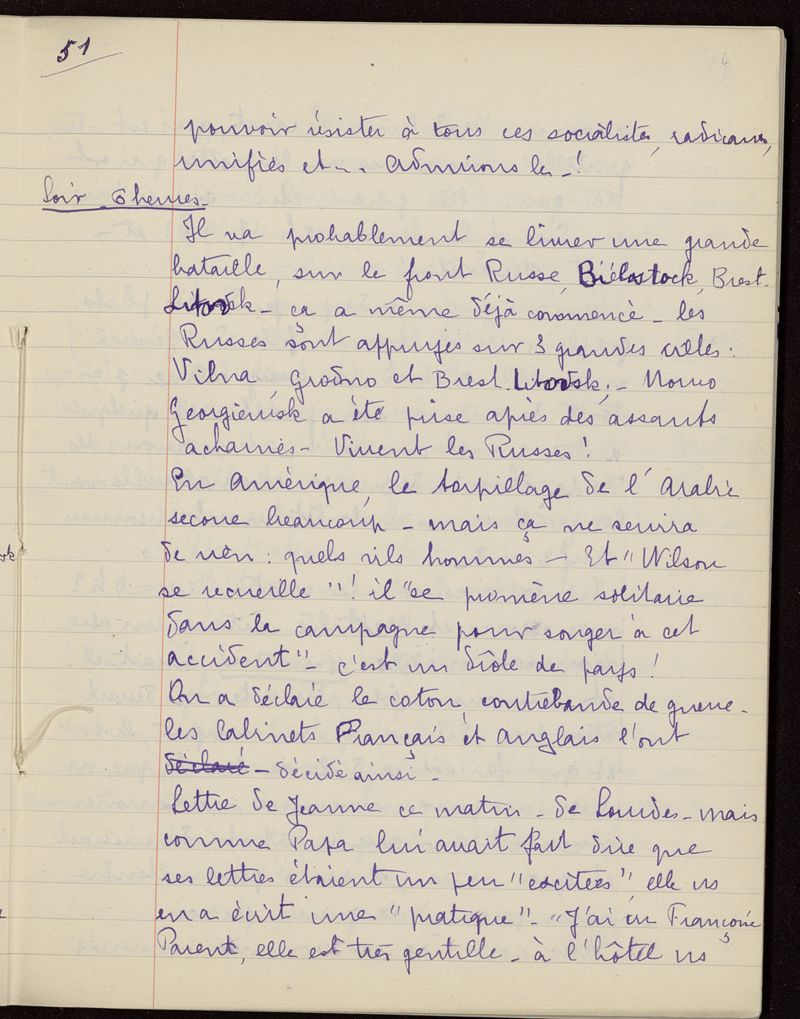 51
pouvoir résister à tous ces socialistes, radicaux,
unifiés etc. Admirons les -!
Soir 6 heures -
Il va probablement se livrer une grande
bataille, sur le front Russe, Biélostock, Brest-
Litovsk - ça a même déjà commencé - les
Russes sont appuyés sur 3 grandes villes :
Vilna, Grodno et Brest-Litovsk. - Novo
Georgievisk a été prise après des assauts
acharnés - Vivent les Russes !
En Amérique, le torpillage de l'Arabic
secoue beaucoup - mais ça ne servira
de rien : quels vils hommes - Et "Wilson
se recueille" ! il "se promène solitaire
dans la campagne pour songer à cet
accident" - c'est un drôle de pays !
On a déclaré le coton contrebande de guerre -
les Cabinets Français et Anglais l'ont
déclaré - décidé ainsi -
Lettre de Jeanne ce matin - de Lourdes - mais
comme Papa lui avait fait dire que
ses lettres étaient un peu "excitées", elle ns
en a écrit une "pratique" - "J'ai vu Françoise
Parent, elle est très gentille - à l'hôtel ns